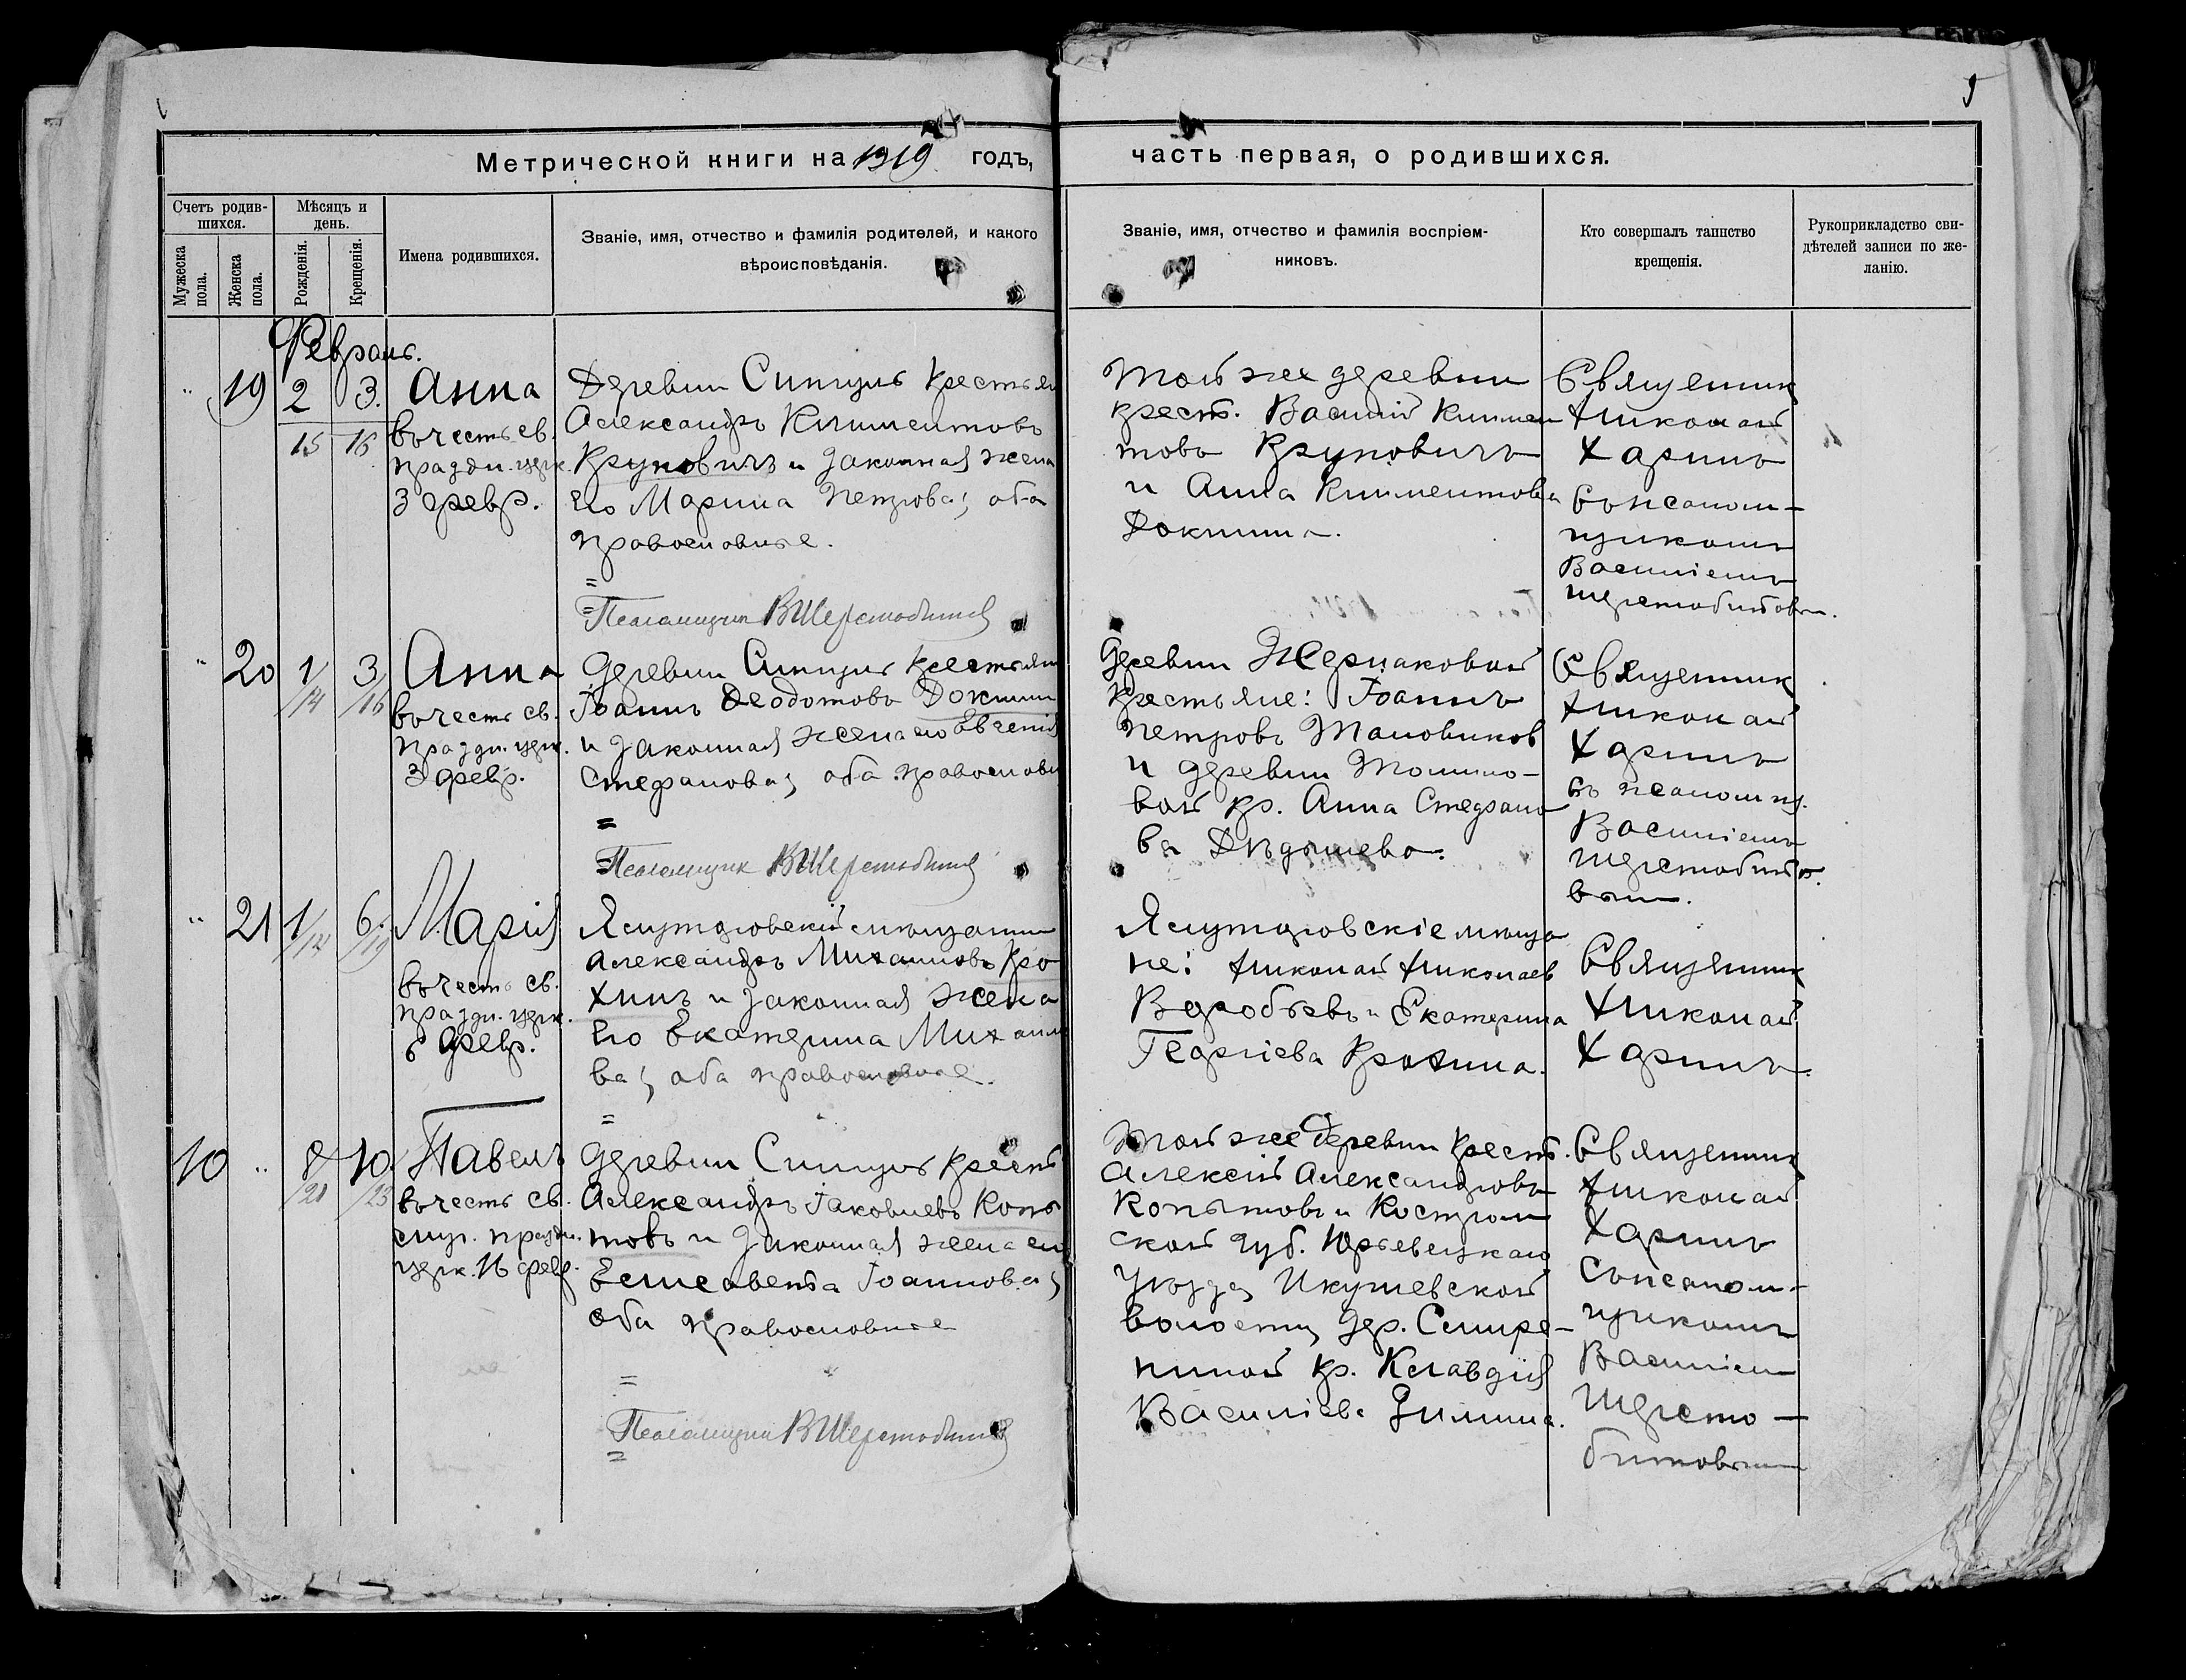 9
Метрической книги на 1919 годъ,
часть первая, о родившихся.
Счетъ родившихся.
Мужеска пола.
Женска пола.
Мѣсяцъ и день.
Рожденія.
Крещенія.
Имена родившихся.
Званіе, имя, отчество и фамилія родителей, и какого
вѣроисповѣданія.
Званіе, имя, отчество и фамилія воспріем-
никовъ.
Кто совершалъ таинство
крещенія.
Рукоприкладство сви-
дѣтелей записи по же-
ланію.
Февраль.
19 2 3. Анна
15 16
въ честь св.
праздн. церк.
3 февр.
Деревни Синицы крестьян
Александръ Климентовъ
Круковичъ и законная жена
Его Марина Петрова, оба
православные.
Псаломщик ВШерстобитов
Той же деревни
крест. Василій Климен
товъ Круковичъ
и Анна Климентова
Докшина.
Священник
Николай
Харинъ
съ псалом-
щикомъ
Василіемъ
Шерстобитовым.
20 1 3 Анна
/14 /16
въ честь св.
праздн. церк.
3 февр.
Деревни Синицы крестьян
Іоаннъ Феодотовъ Докшин
и законная жена его Евгенія
Стефанова, оба православн
Псаломщик ВШерстобитов
Деревни Жернаковой
крестьяне: Іоаннъ
Петровъ Таловиков
и деревни Томило-
вой кр. Анна Стефано
ва Дѣдышева.
Священник
Николай
Харинъ
съ псаломщ.
Василіемъ
Шерстобито
вым.
21 1/14 6/19 Марія
въ честь св.
праздн. церк.
6 февр.
Ялуторовскій мѣщанин
Александръ Михаиловъ Кро
хинъ и законная жена
Его Екатерина Михаило
ва, оба православные.
Ялуторовскіе мѣща
не: Николай Николаев
Воробьевъ и Екатерина
Георгіева Крохина.
Священник
Николай
Харинъ.
10 8 10 Павелъ
/21 /23
въ честь св.
служ. праздн.
церк. 16 февр.
Деревни Синицы крест
Александръ Іаковлевъ Копы
товъ и законная жена его
Елисавета Іоаннова,
оба православные
Псаломщик ВШерстобитов
Той же деревни крест.
Алексій Александровъ
Копытовъ и Костром
ской губ. Юрьевецкаго
уѣзда, Икушевской
волости, дер. Смире-
ниной кр. Клавдія
Василіева Зимина.
Священник
Николай
Харинъ
съ псалом-
щикомъ
Василіем
Шерсто-
битовым